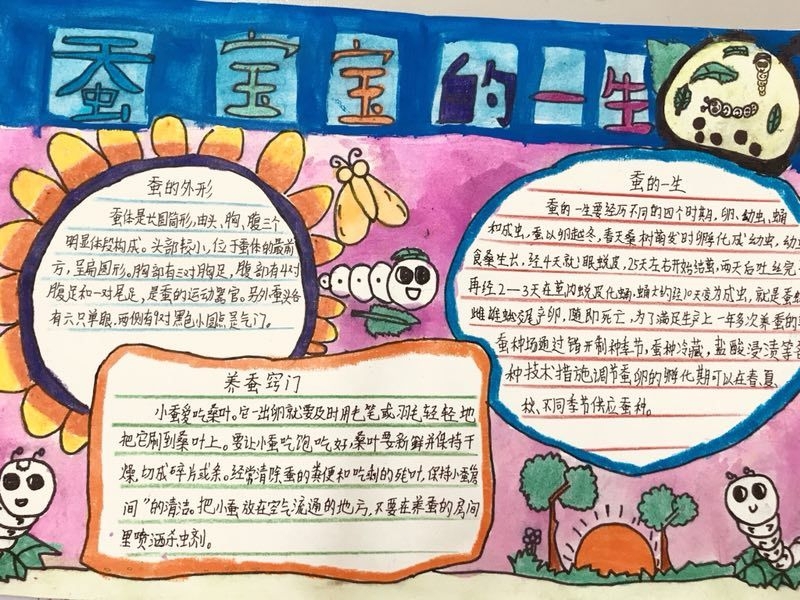 蚕宝宝的一生
蚕的外形
蚕体是长圆筒形,由头、胸、腹三个
明显体段构成。头部较小,位于蚕体的最前
方,呈扁圆形。胸部有三对胸足,腹部有4对
腹足和一对尾足,是蚕的运动器官。另外蚕头各
有六只单眼,两侧有9对黑色小圆点是气门。
蚕的一生
蚕的一生要经历不同的四个时期,卵、幼虫、蛹
和成虫,蚕以卵越冬,春天桑树萌发时孵化成幼虫,幼
食桑生长,经4天就眠蜕皮,25天左右开始结茧,两天后吐丝完
再经2—3天在茧内蜕皮化蛹,蛹大约经10天变为成虫,就是蚕
雌雄蛾交尾产卵,随即死亡,为了满足生产上一年多次养蚕的
蚕种场通过错开制种季节,蚕种冷藏,盐酸浸渍等
种技术措施,调节蚕卵的孵化期可以在春、夏
秋、不同季节供应蚕种。
养蚕窍门
小蚕爱吃桑叶。它一出卵就要及时用毛笔或羽毛轻轻地
把它刷到桑叶上。要让小蚕吃饱吃好,桑叶要新鲜并保持干
燥,切成碎片或条。经常清除蚕的粪便和吃剩的死叶,保持小蚕房
间”的清洁。把小蚕放在空气流通的地方,不要在养蚕的房间
里喷洒杀虫剂。